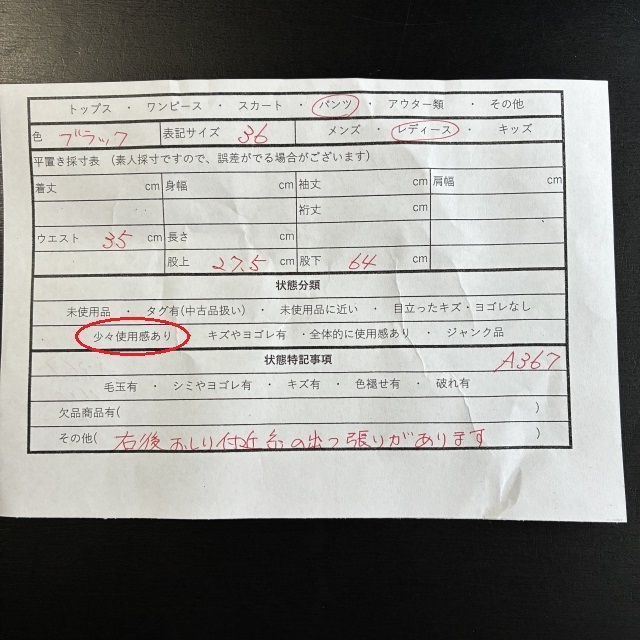 トップス ・ ワンピース ・ スカート ・ パンツ ・ アウター類 ・ その他
色 ブラック 表記サイズ 36 メンズ ・ レディース ・ キッズ
平置き採寸表 (素人採寸ですので、誤差がでる場合がございます)
着丈 cm 身幅 cm 袖丈 cm 肩幅 cm
裄丈 cm
ウエスト 35 cm 長さ cm
股上 27.5 cm 股下 64 cm
状態分類
未使用品 ・ タグ有(中古品扱い) ・ 未使用品に近い ・ 目立ったキズ・ヨゴレなし
・ 少々使用感あり ・ キズやヨゴレ有 ・全体的に使用感あり ・ ジャンク品
状態特記事項 A367
毛玉有 ・ シミやヨゴレ有 ・ キズ有 ・ 色褪せ有 ・ 破れ有
欠品商品有( )
その他( 右後おしり付近糸の出っ張りがあります )